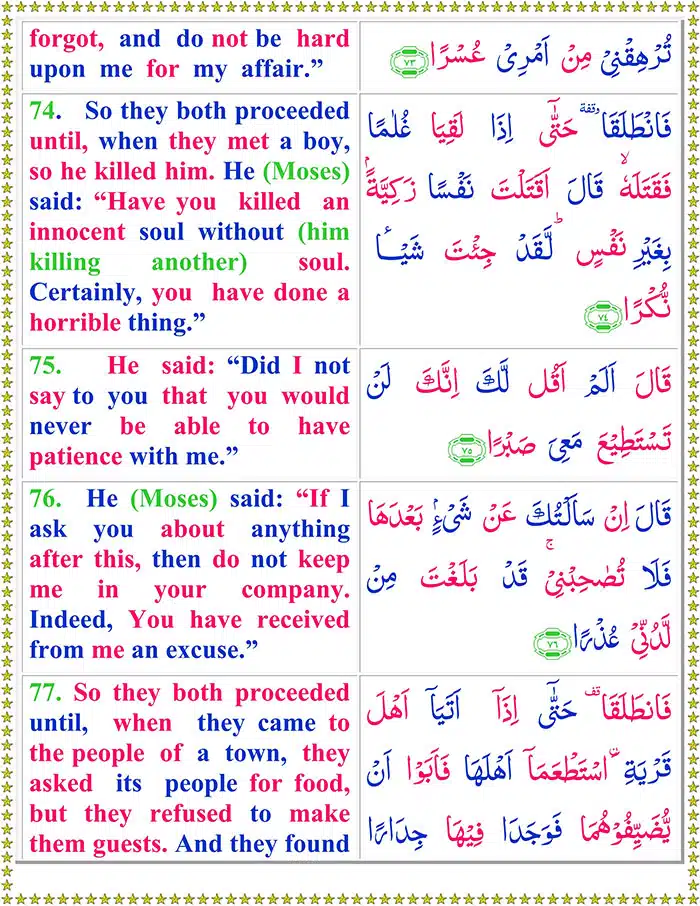 forgot, and do not be hard
upon me for my affair.”
تُرْهِقْنِىْ مِنْ اَمْرِىْ عُسْرًا ۝٧٣
74. So they both proceeded
until, when they met a boy,
so he killed him. He (Moses)
said: “Have you killed an
innocent soul without (him
killing another) soul.
Certainly, you have done a
horrible thing.”
فَانْطَلَقَا ۥ وقفة حَتّٰٓى اِذَا لَقِيَا غُلٰمًا
فَقَتَلَهٗ ۙ قَالَ اَقَتَلْتَ نَفْسًا زَكِيَّةًۢ
بِغَيْرِ نَفْسٍ ؕ لَقَدْ جِئْتَ شَيْــًٔا
نُّكْرًا ۝٧٤
75. He said: “Did I not
say to you that you would
never be able to have
patience with me.”
قَالَ اَلَمْ اَقُل لَّكَ اِنَّكَ لَنْ
تَسْتَطِيْعَ مَعِىَ صَبْرًا ۝٧٥
76. He (Moses) said: “If I
ask you about anything
after this, then do not keep
me in your company.
Indeed, You have received
from me an excuse.”
قَالَ اِنْ سَاَلْتُكَ عَنْ شَىْءٍۢ بَعْدَهَا
فَلَا تُصٰحِبْنِىْ ۚ قَدْ بَلَغْتَ مِنْ
لَّدُنِّىْ عُذْرًا ۝٧٦
77. So they both proceeded
until, when they came to
the people of a town, they
asked its people for food,
but they refused to make
them guests. And they found
فَانْطَلَقَا قف حَتّٰٓى اِذَاۤ اَتَيَاۤ اَهْلَ
قَرْيَةِ ۨاسْتَطْعَمَاۤ اَهْلَهَا فَاَبَوْا اَنْ
يُّضَيِّفُوْهُمَا فَوَجَدَا فِيْهَا جِدَارًا